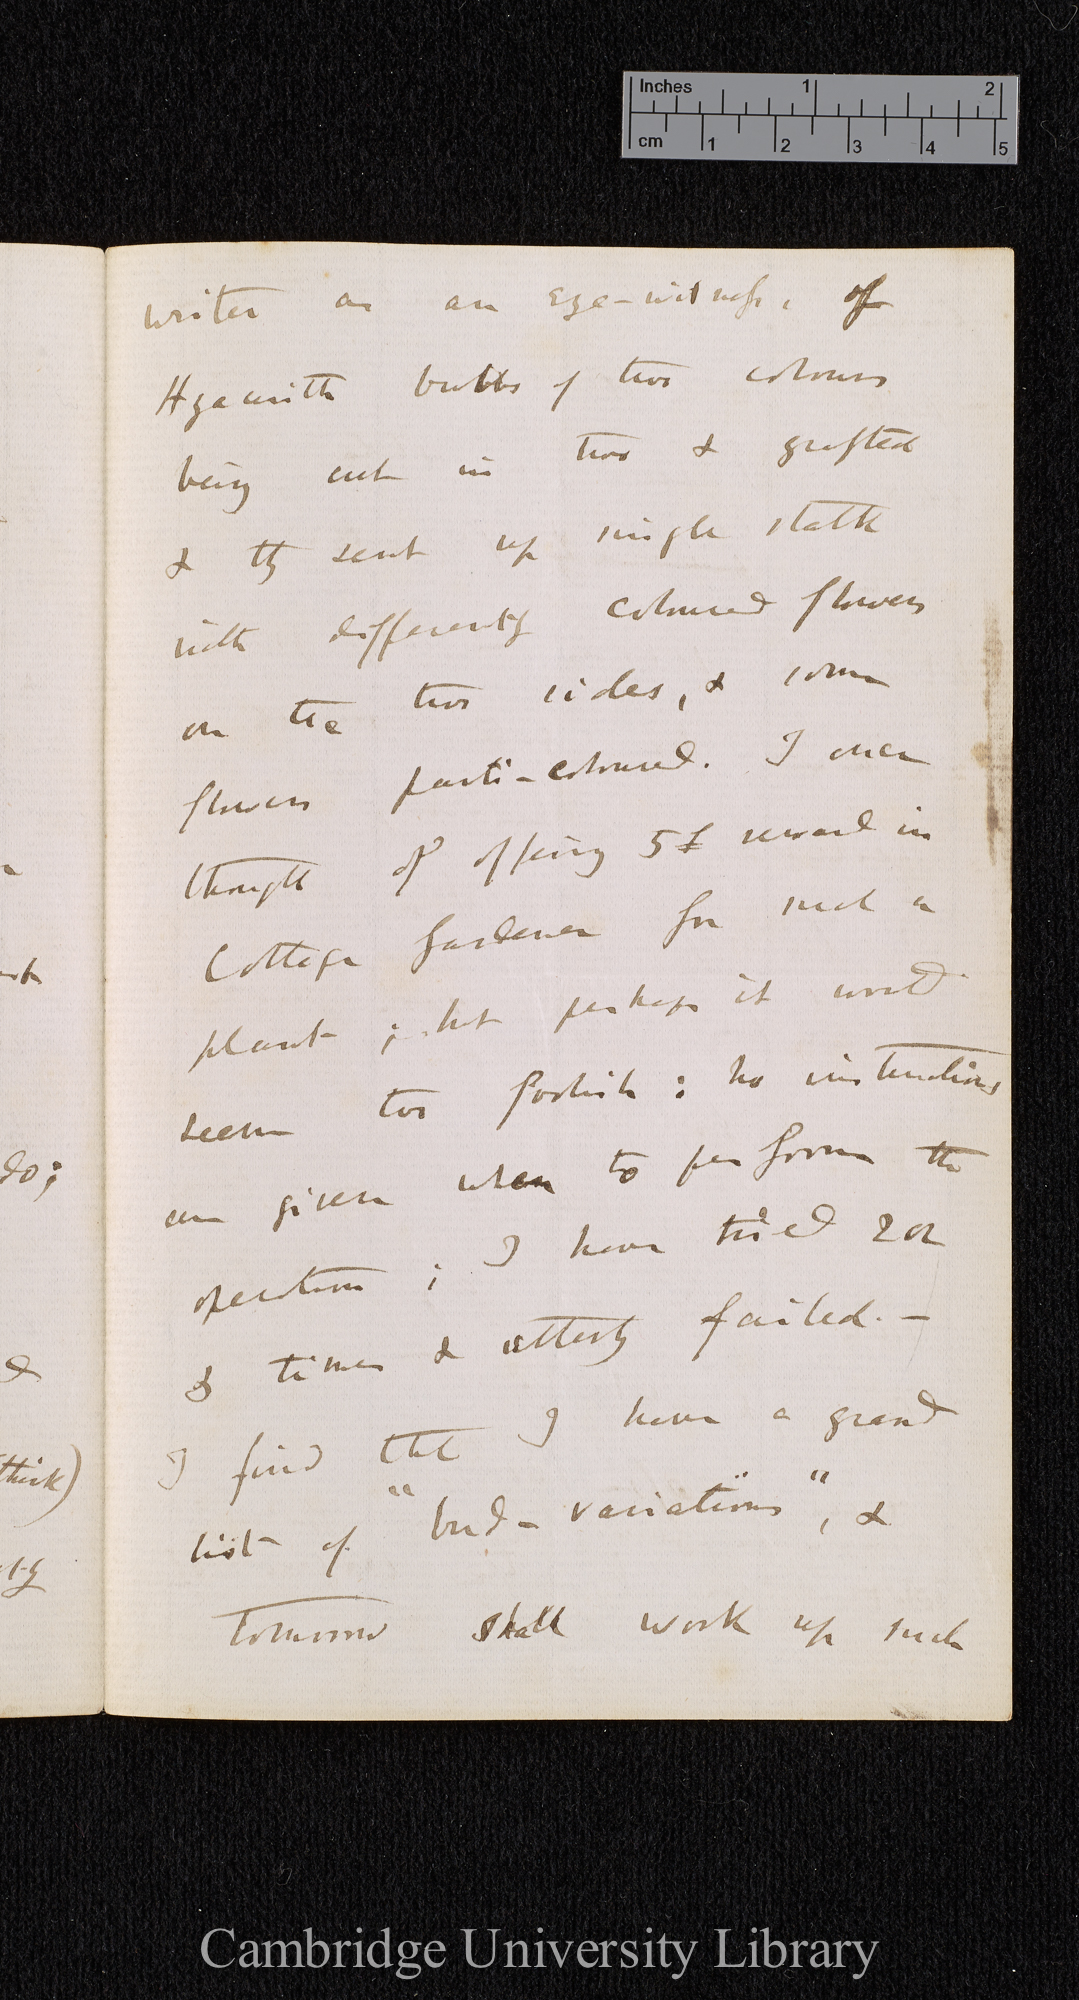 Inches 1 2
cm 1 2 3 4 5
writer as an eye-witness, of
Hyacinth bulbs of two colours
being cut in two & grafted
& thy sent up single stalk
with differently coloured flowers
on the two sides, & some
flowers parti-coloured. I once
thought of offering 5£ reward in
Cottage Gardener for such a
plant; but perhaps it would
seem too foolish: no instructions
are given when to perform the
operation; I have tried 2 or
3 times & utterly failed.—
I find tht I have a grand
list of "bud-variations", &
tomorrow shall work up such
do;
think)
Cambridge University Library